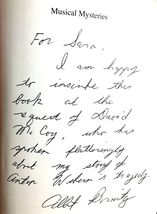 Musical Mysteries
For Sara.
I am happy
to inscribe this
book at the
request of David
McCoy, who has
spoken flatteringly
about my story of
Anton Webern's tragedy.
Albert Borowitz